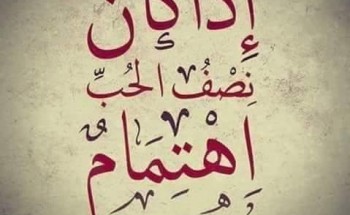 إِذَا كَانَ
نِصْفُ الحُبِّ
اهْتِمَامٌ